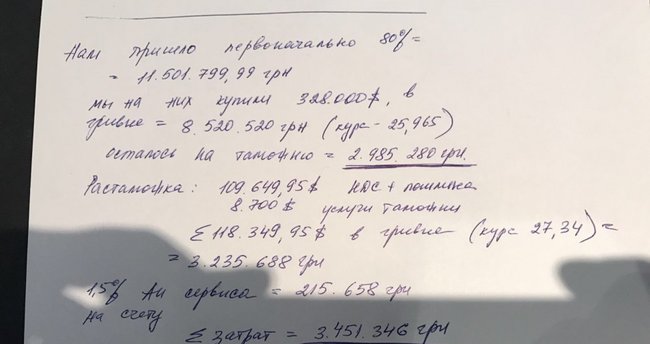 Нам пришло первоначально 80% =
= 11.501.799,99 грн
мы на них купили 328.000$, в
гривне = 8.520.520 грн (курс - 25,965)
осталось на таможню = 2.985.280 грн.
Растаможка: 109.649,95$ НДС + пошлина
8.700$ услуги таможни
Σ 118.349,95$ в гривне (курс 27,34) =
= 3.235.688 грн
1,5% Ай сервиса = 215.658 грн
на счету
Σ затрат = 3.451.346 грн